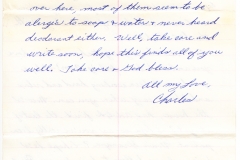 over here, most of them seem to be
alergic to soap & water & never heard
deoderant either. Well, take care and
write soon, hope this finds all of you
well. Take care & God bless.
All my Love,
Charles